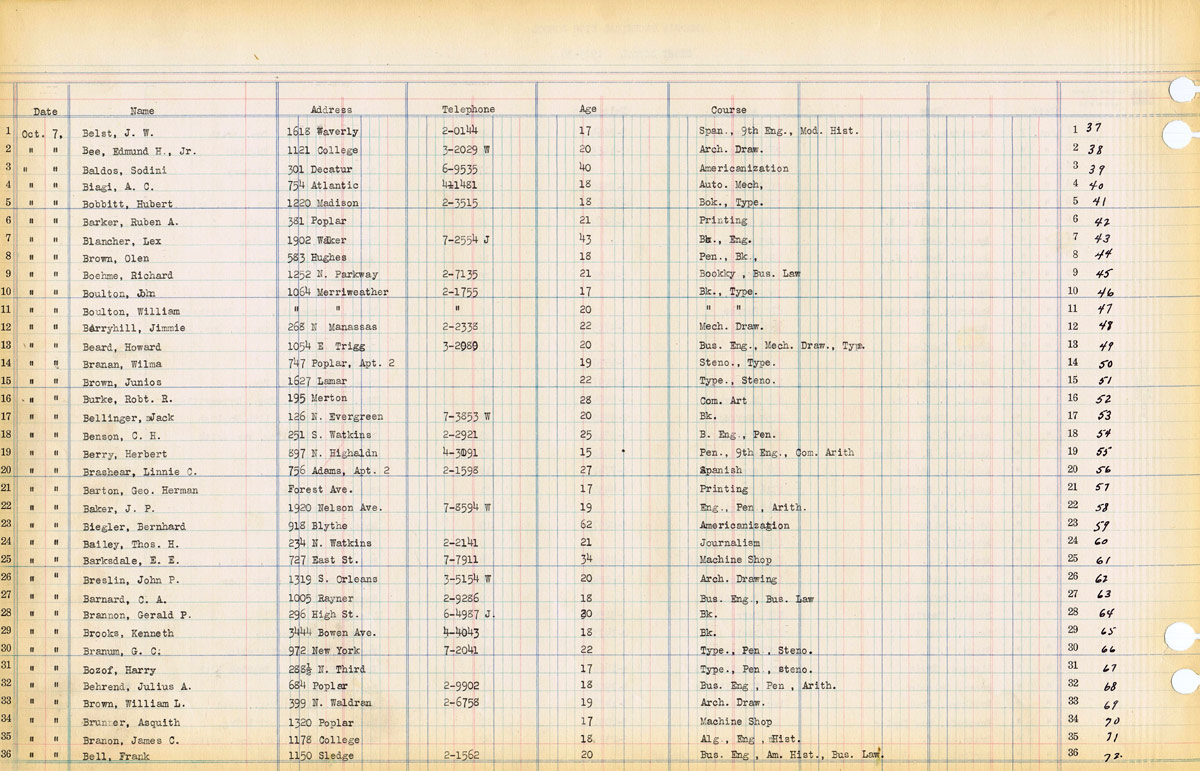 Date Name Address Telephone Age Course
1 Oct. 7. Belst, J. W. 1618 Waverly 2-0144 17 Span., 9th Eng., Mod. Hist. 1 37
2 " " Bee, Edmund H., Jr. 1121 College 3-2029 W 20 Arch. Draw. 2 38
3 " " Baldos, Sodini 301 Decatur 6-9535 40 Americanization 3 39
4 " " Biagi, A. C. 754 Atlantic 441481 18 Auto. Mech, 4 40
5 " " Bobbitt, Hubert 1220 Madison 2-3515 18 Bok., Type. 5 41
6 " " Barker, Ruben A. 381 Poplar 21 Printing 6 42
7 " " Blancher, Lex 1902 Walker 7-2554 J 43 Bk., Eng. 7 43
8 " " Brown, Olen 583 Hughes 18 Pen., Bk., 8 44
9 " " Boehme, Richard 1252 N. Parkway 2-7135 21 Bookky , Bus. Law 9 45
10 " " Boulton, John 1064 Merriweather 2-1755 17 Bk., Type. 10 46
11 " " Boulton, William " " " 20 " " 11 47
12 " " Berryhill, Jimmie 268 N Manassas 2-2338 22 Mech. Draw. 12 48
13 " " Beard, Howard 1054 E Trigg 3-2989 20 Bus. Eng., Mech. Draw., Typ. 13 49
14 " " Branan, Wilma 747 Poplar, Apt. 2 19 Steno., Type. 14 50
15 " " Brown, Junios 1627 Lamar 22 Type., Steno. 15 51
16 " " Burke, Robt. R. 195 Merton 28 Com. Art 16 52
17 " " Bellinger, Jack 126 N. Evergreen 7-3853 W 20 Bk. 17 53
18 " " Benson, C. H. 251 S. Watkins 2-2921 25 B. Eng., Pen. 18 54
19 " " Berry, Herbert 897 N. Highaldn 4-3091 15 Pen., 9th Eng., Com. Arith 19 55
20 " " Brashear, Linnie C. 756 Adams, Apt. 2 2-1598 27 Spanish 20 56
21 " " Barton, Geo. Herman Forest Ave. 17 Printing 21 57
22 " " Baker, J. P. 1920 Nelson Ave. 7-8594 W 19 Eng., Pen , Arith. 22 58
23 " " Biegler, Bernhard 918 Blythe 62 Americanization 23 59
24 " " Bailey, Thos. H. 234 N. Watkins 2-2141 21 Journalism 24 60
25 " " Barksdale, E. E. 727 East St. 7-7911 34 Machine Shop 25 61
26 " " Breslin, John P. 1319 S. Orleans 3-5154 W 20 Arch. Drawing 26 62
27 " " Barnard, C. A. 1005 Rayner 2-9286 18 Bus. Eng., Bus. Law 27 63
28 " " Brannon, Gerald P. 296 High St. 6-4987 J. 20 Bk. 28 64
29 " " Brooks, Kenneth 3444 Bowen Ave. 4-4043 18 Bk. 29 65
30 " " Branum, G. C. 972 New York 7-2041 22 Type., Pen , Steno. 30 66
31 " " Bozof, Harry 288½ N. Third 17 Type., Pen , steno. 31 67
32 " " Behrend, Julius A. 684 Poplar 2-9902 18 Bus. Eng , Pen , Arith. 32 68
33 " " Brown, William L. 399 N. Waldran 2-6758 19 Arch. Draw. 33 69
34 " " Brunner, Asquith 1320 Poplar 17 Machine Shop 34 70
35 " " Branon, James C. 1178 College 18 Alg., Eng , Hist. 35 71
36 " " Bell, Frank 1150 Sledge 2-1562 20 Bus. Eng , Am. Hist., Bus. Law. 36 72.